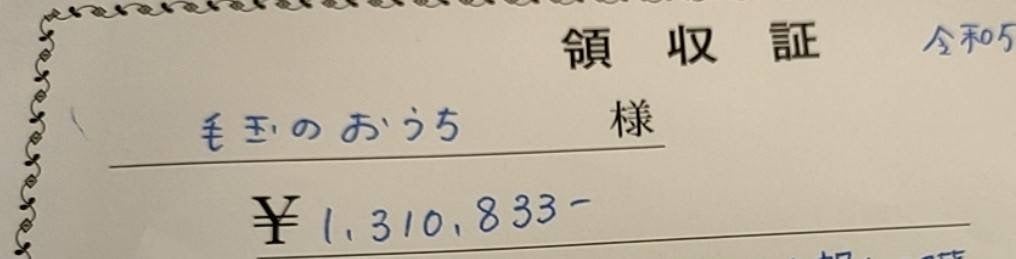 領収証
令和5
毛玉のおうち 様
¥1,310,833-